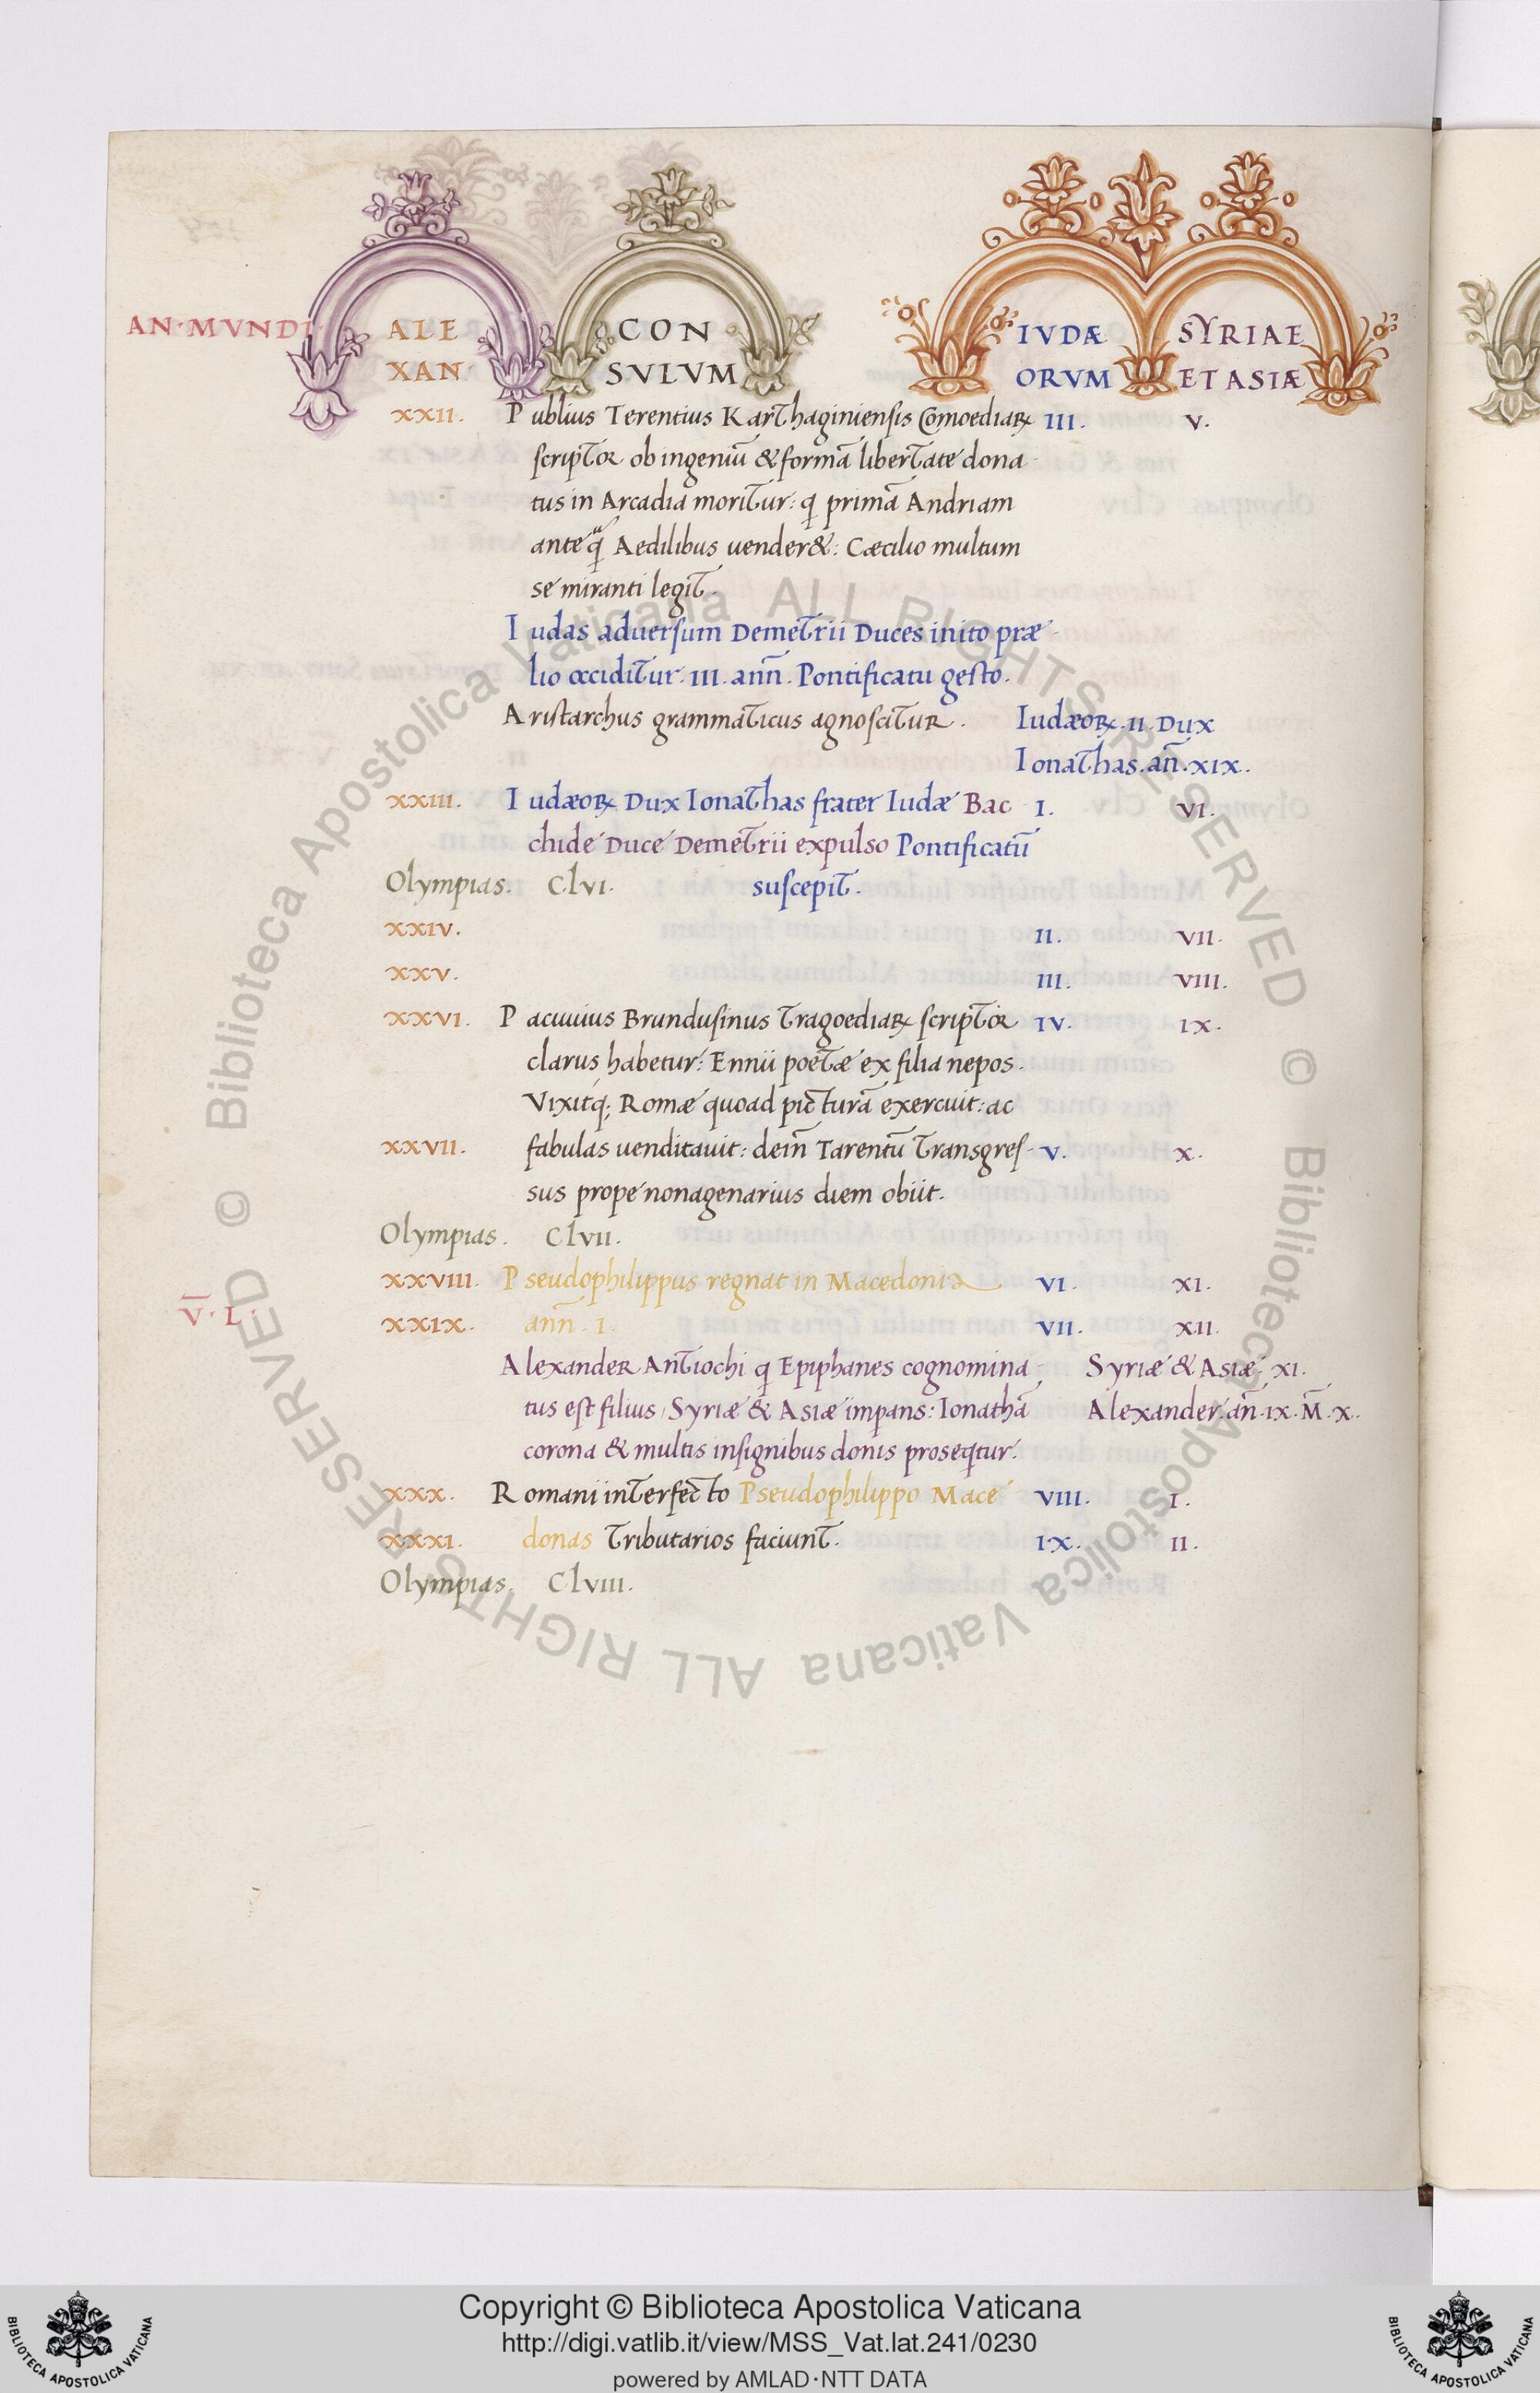 AN·MVNDI ALE CON IVDÆ SYRIAE
XAN SVLVM ORVM ET ASIÆ
XXII. Publius Terentius Karthaginiensis Comoediaꝝ III. V.
scriptor ob ingeniū & formā libertate dona-
tus in Arcadia moritur: q primā Andriam
ante q̄ Aedilibus uender&: Cæcilio multum
se miranti legit.
Iudas aduersum Demetrii Duces inito præ-
lio occiditur. III. ann̄. Pontificatu gesto.
Aristarchus grammaticus agnoscitur. Iudæoꝝ. II. Dux
Ionathas. an̄. XIX.
XXIII. Iudæoꝝ Dux Ionathas frater Iudæ Bac- I. VI.
chide Duce Demetrii expulso Pontificatū
Olympias. ClVI. suscepit.
XXIV. II. VII.
XXV. III. VIII.
XXVI. Pacuuius Brundusinus Tragoediaꝝ scriptor IV. IX.
clarus habetur: Ennii poetæ ex filia nepos.
Vixitq; Romæ quoad picturā exercuit: ac
XXVII. fabulas uenditauit: dein̄ Tarentū Transgres- V. X.
sus prope nonagenarius diem obiit.
Olympias. ClVII.
XXVIII. Pseudophilippus regnat in Macedonia VI. XI.
V̄. L.
XXIX. ann̄. I. VII. XII.
Alexander Antiochi q Epiphanes cognomina- Syriæ & Asiæ XI.
tus est filius, Syriæ & Asiæ imꝑans: Ionathā Alexander. an̄. IX. M̄. X.
corona & multis insignibus donis proseqtur.
XXX. Romani interfecto Pseudophilippo Mace- VIII. I.
XXXI. donas Tributarios faciunt. IX. II.
Olympias. ClVIII.
© Biblioteca Apostolica Vaticana ALL RIGHTS RESERVED © Biblioteca Apostolica Vaticana ALL RIGHTS RESERVED
Copyright © Biblioteca Apostolica Vaticana
http://digi.vatlib.it/view/MSS_Vat.lat.241/0230
powered by AMLAD·NTT DATA
BIBLIOTECA APOSTOLICA VATICANA
BIBLIOTECA APOSTOLICA VATICANA